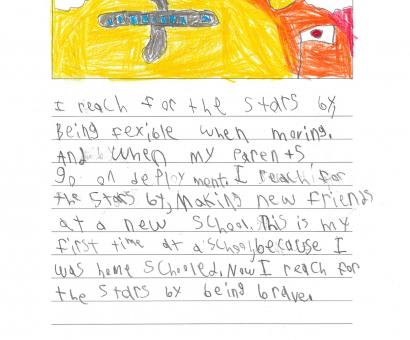 I reach for the Stars by
Being fexible when moving.
And by when my Parents
go on deployment. I reach for
the Stars by, Making new friends
at a new School. This is my
first time at a school because I
was home Schooled. Now I reach for
the Stars by being brave.